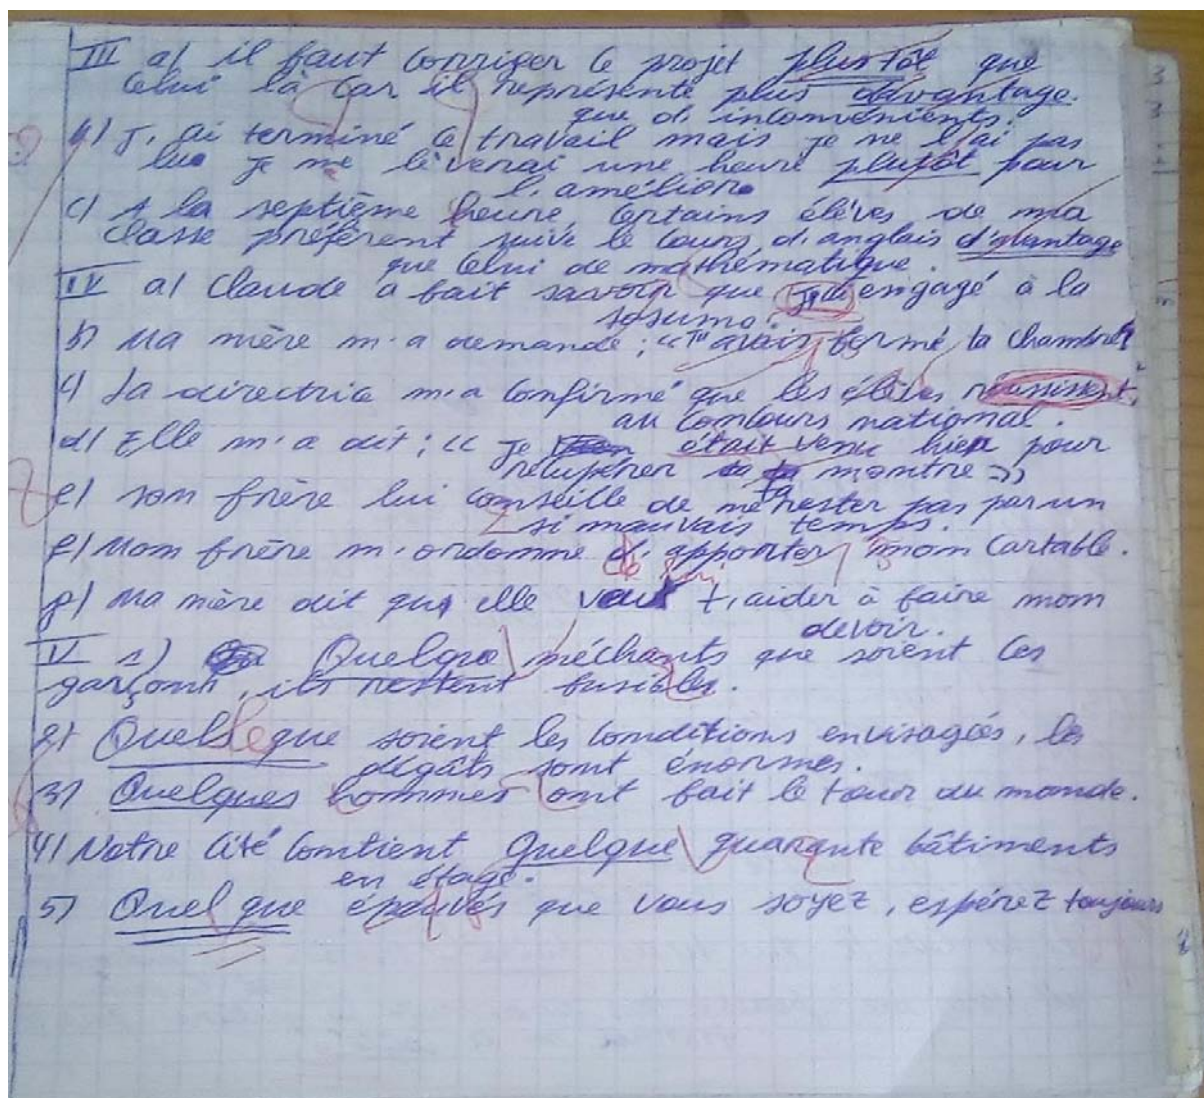 III a) il faut corriger ce projet plustôt que
celui là car il représente plus davantage.
que d'inconvénients.
b) J'ai terminé ce travail mais je ne l'ai pas
lu je me lèverai une heure plutôt pour
l'améliore
c) A la septième heure, certains élèves de ma
classe préfèrent suivre le cours d'anglais d'avantage
que celui de mathématique.
IV a) Claude a fait savoir que engagé à la
sosumo.
b) Ma mère m'a demandé ; "Tu avais fermé la chambre
c) La directrice m'a confirmé que les élèves réussissent
au concours national.
d) Elle m'a dit ; "Je était venu hier pour
récupérer ta montre"
e) son frère lui conseille de ne rester pas par un
si mauvais temps.
f) Mon frère m'ordonne d'apporter mon cartable.
g) Ma mère dit qu'elle veut t'aider à faire mon
devoir.
V 1) Quelque méchants que soient ces
garçons, ils restent
2) Quels que soient les conditions envisagées, les
dégâts sont énormes.
3) Quelques hommes ont fait le tour du monde.
4) Notre cité contient quelque quarante bâtiments
en étage.
5) Quel que que vous soyez, espérez toujours